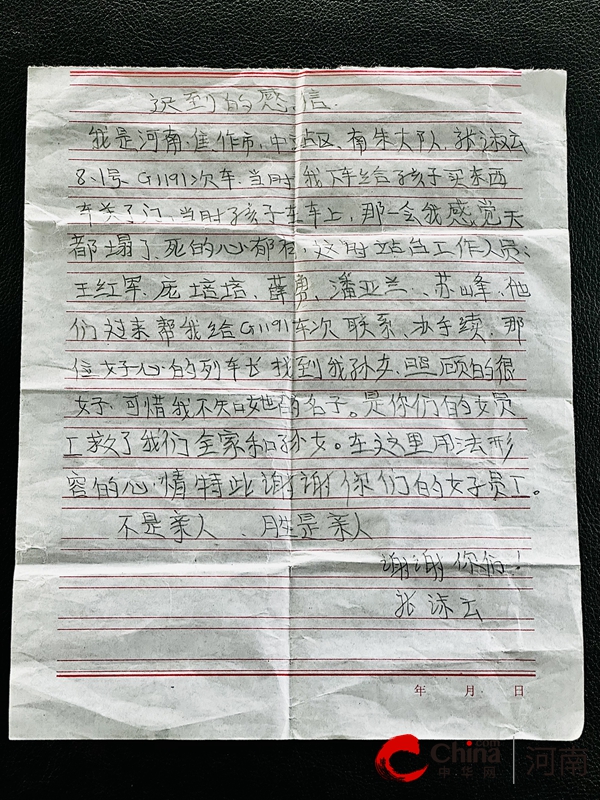 迟到的感信.
我是河南.焦作市.中站区.南朱大队.张淑云
8.1号G1191次车.当时我下车给孩子买东西
车关了门.当时孩子在车上,那一会我感觉天
都塌了.死的心都有.这时站台工作人员:
王红军、庞培培、薛勇、潘亚兰、苏峰、他
们过来帮我给G1191车次联系、办手续、那
位好心的列车长找到我孙女.照顾的很
好.可惜我不知她的名子。是你们的好员
工救了我们全家和孙女。在这里用法形
容的心情特此谢谢你们的好员工。
不是亲人、胜是亲人
谢谢你们!
张淑云
年 月 日
China.com
中华网
河南